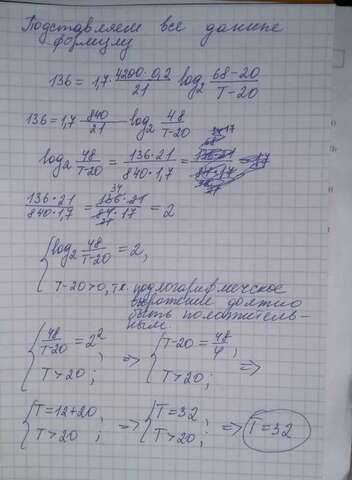 Подставляем все данные
формулу
136 = 1,7 4200·0,2/21 log₂ 68-20/T-20
136 = 1,7 840/21 log₂ 48/T-20
log₂ 48/T-20 = 136·21/840·1,7 =
136·21/840·1,7 = 136·21/84·17 = 2
{ log₂ 48/T-20 = 2,
T-20>0, т.к. подлогарифмическое
выражение должно
быть положитель-
ным.
{ 48/T-20 = 2²; T>20; => { T-20 = 48/4; T>20; =>
{ T=12+20; T>20; => { T=32; T>20; => T=32